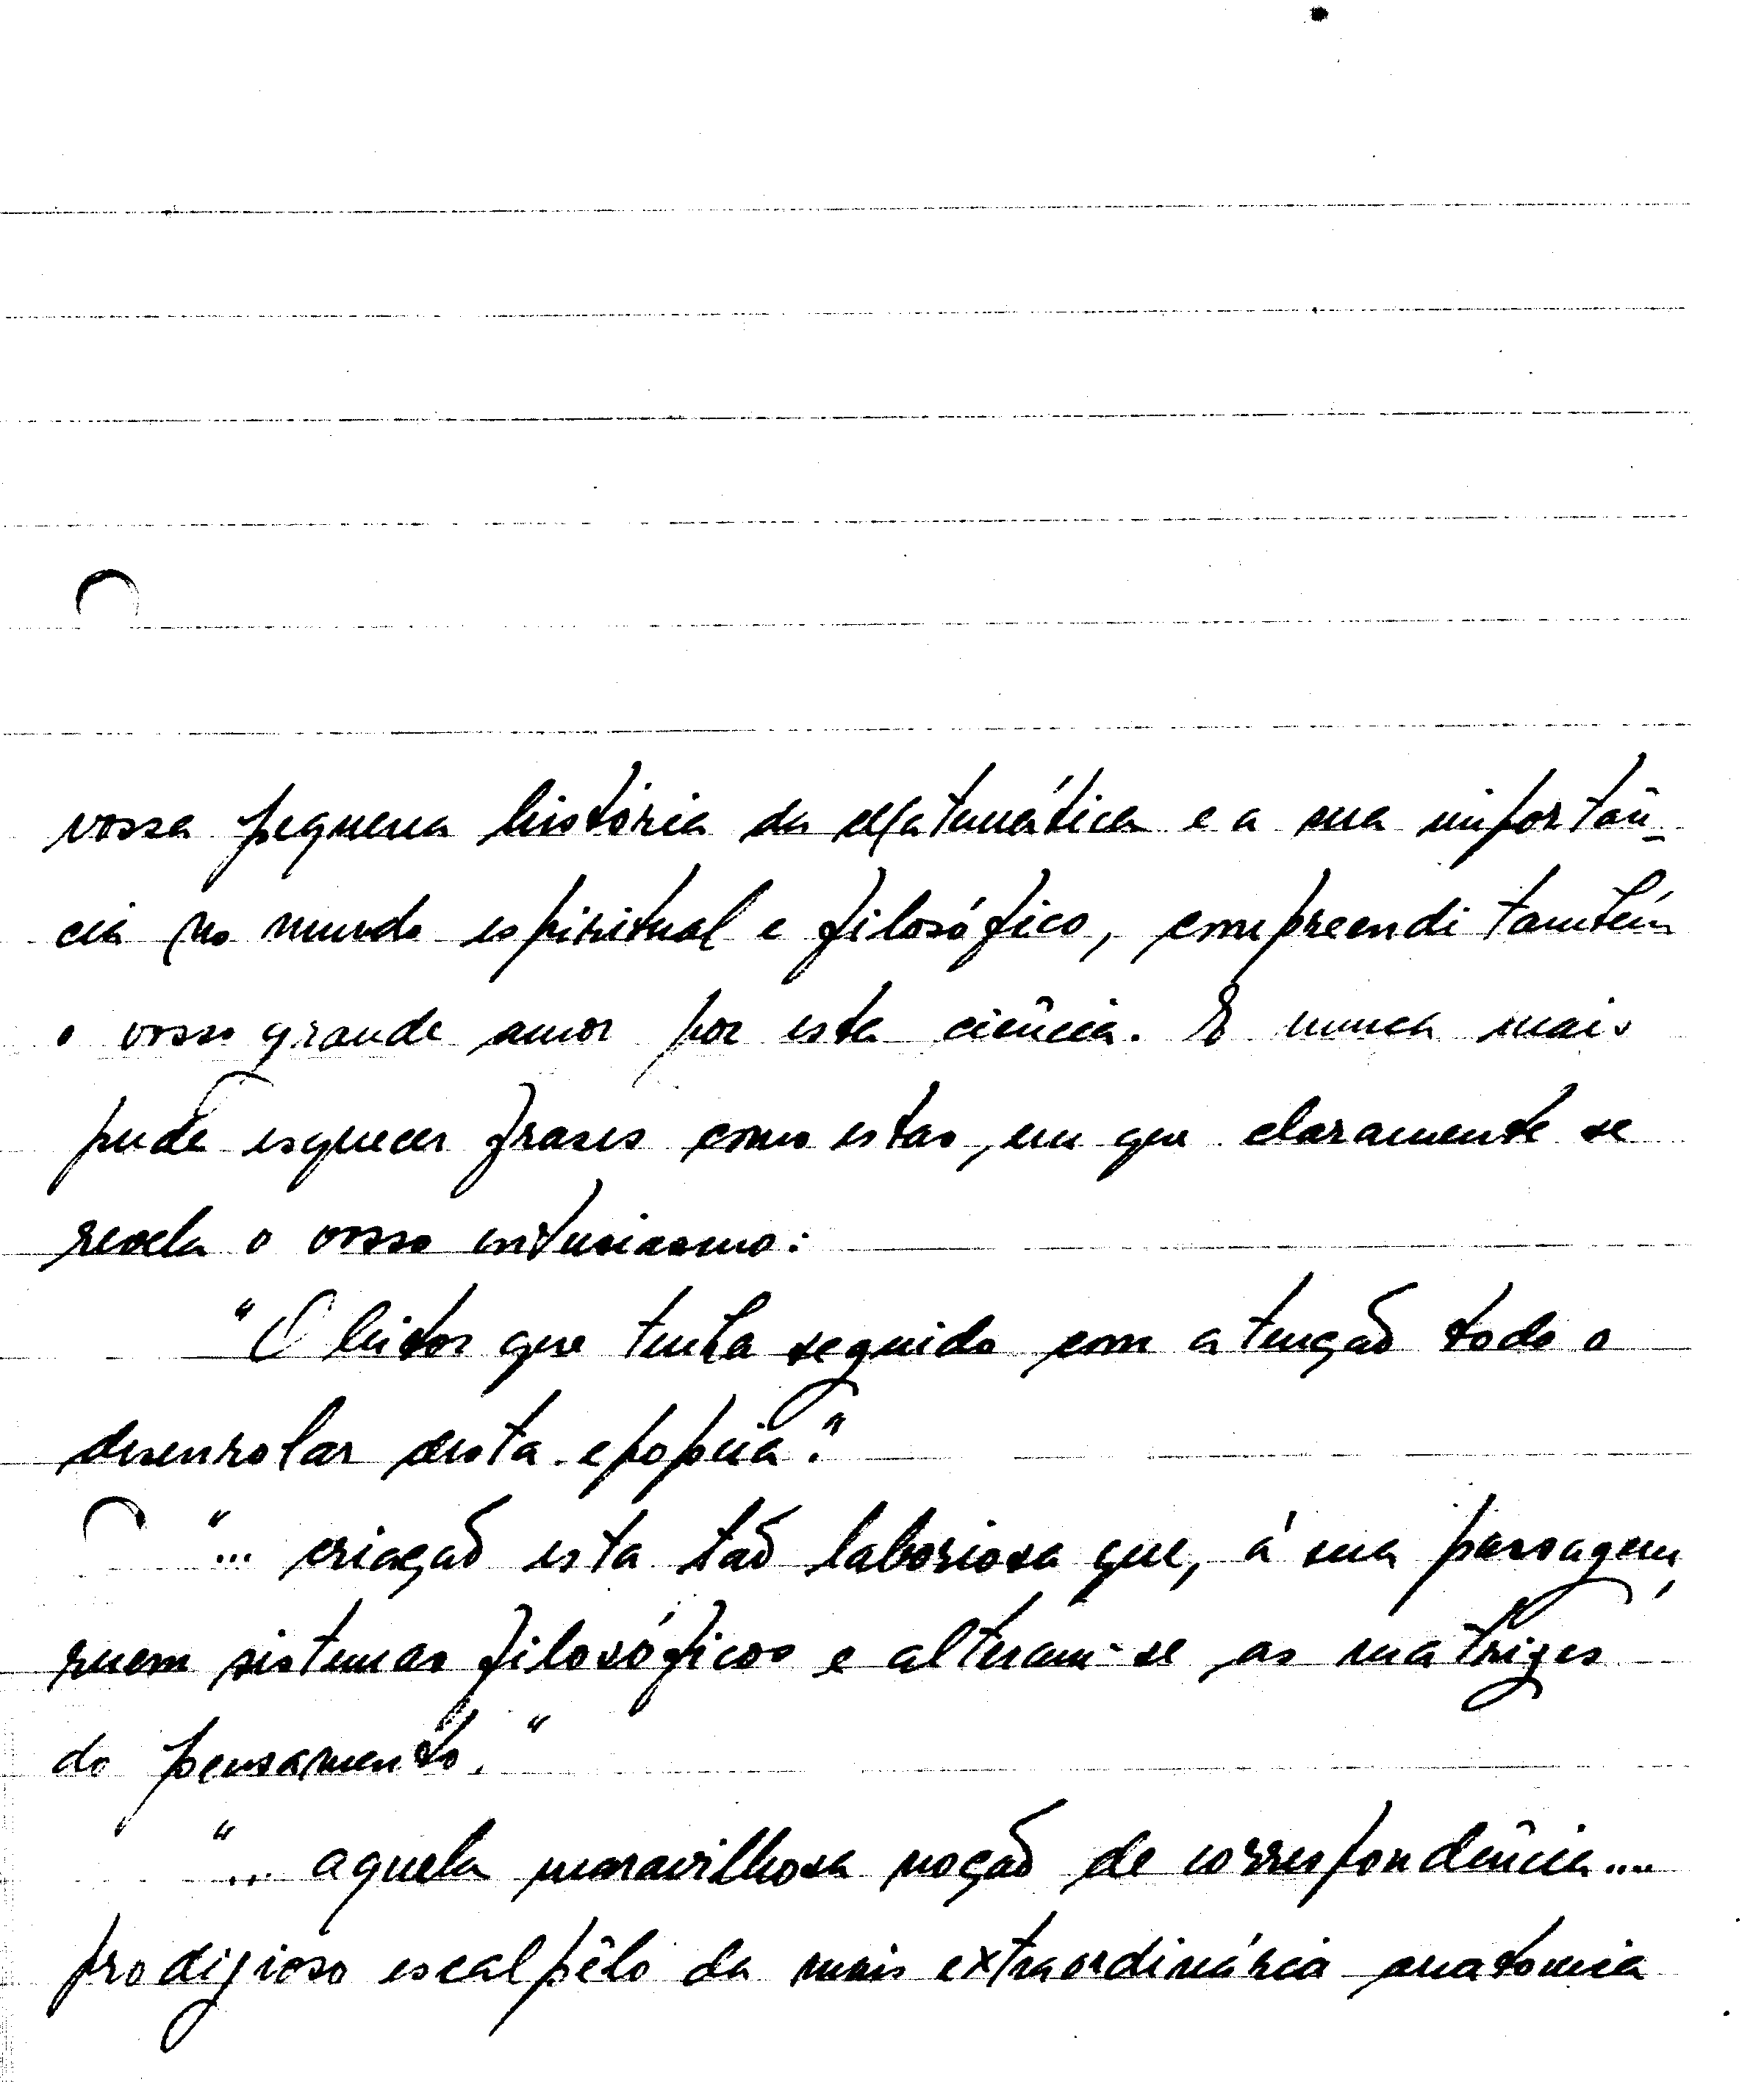 vossa pequena história da Matemática e a sua importân-
cia no mundo espiritual e filosófico, compreendi também
o vosso grande amor por esta ciência. E nunca mais
pude esquecer frases como estas, em que claramente se
revela o vosso entusiasmo:
"O leitor que tenha seguido com atenção todo o
desenrolar desta epopeia."
"... criação esta tão laboriosa que, à sua passagem,
ruem sistemas filosóficos e alteram-se as matrizes
do pensamento."
"... aquela maravilhosa noção de correspondência....
prodigioso escalpêlo da mais extraordinária anatomia